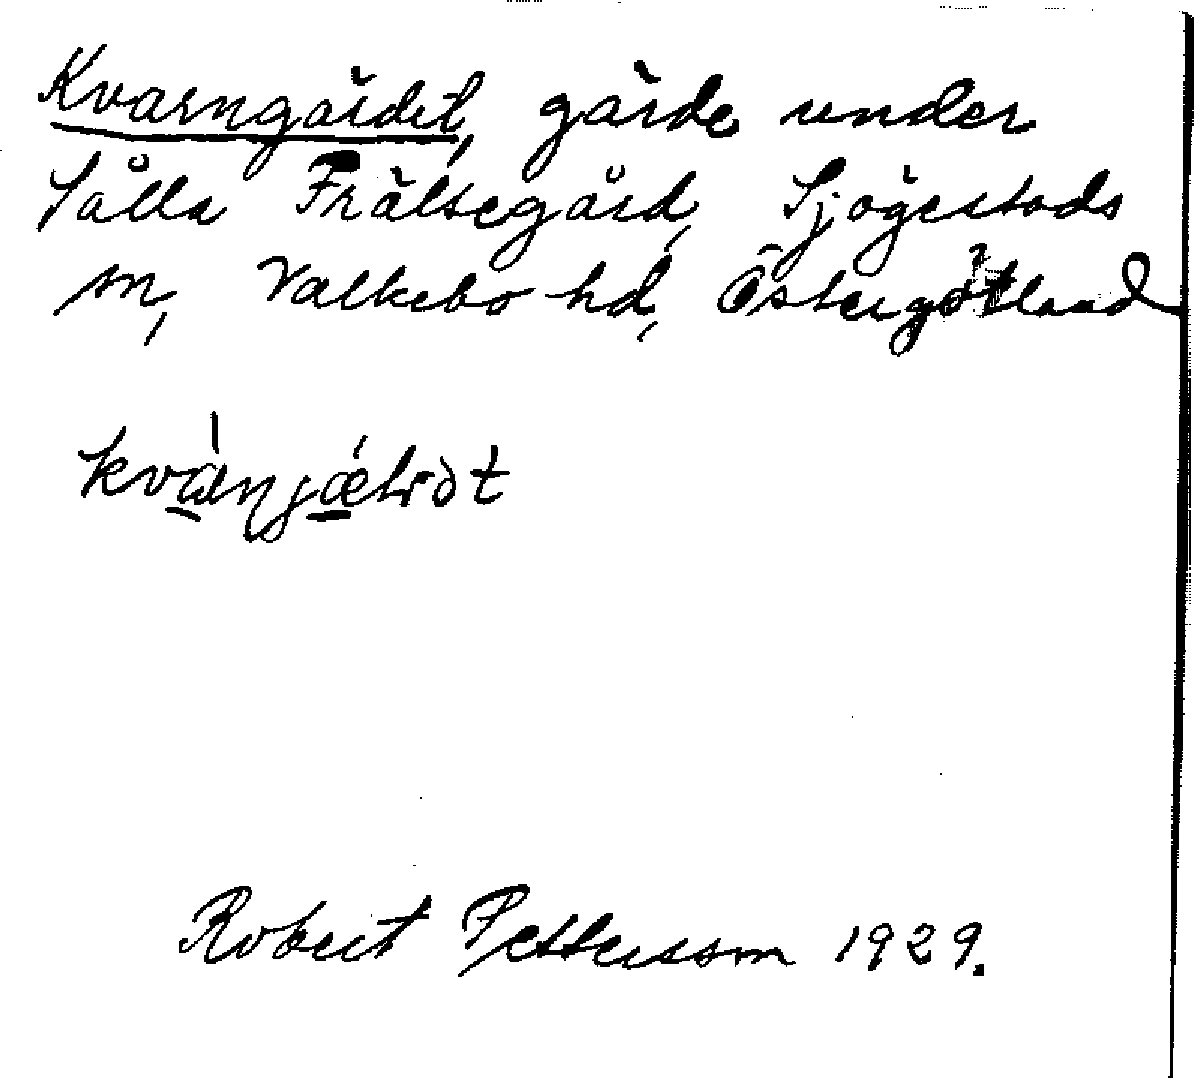 Kvarngärdet, gärde under
Sålla Frälsegård, Sjögestads
sn, Valkebo hd, Östergötland
Robert Pettersson 1929.